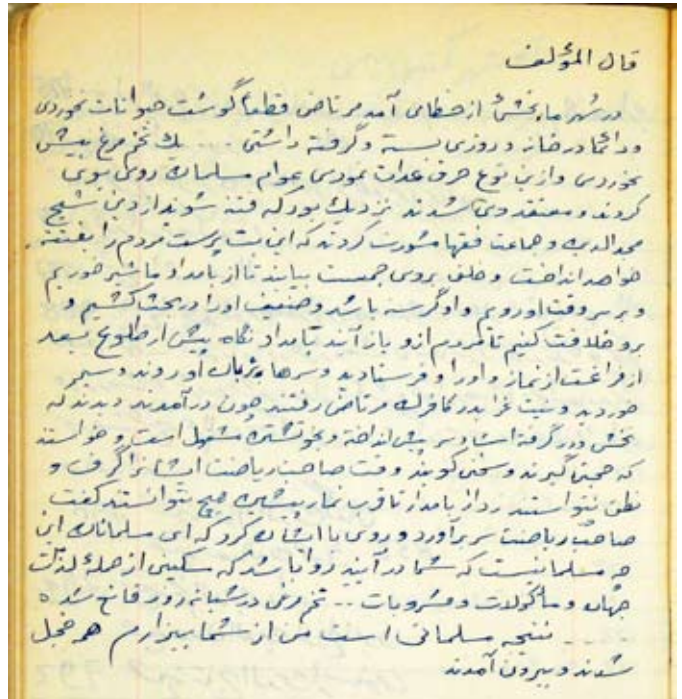 قال المؤلف
در شهر ما بخشئ از خطای آمد مرتاض قطعاً گوشت حیوانات نخوردی
و دائما در خانه و روزی بسته و گرفته داشتی .... یك تخم مرغ بیش
نخوردی و ازین نوع خرق عادت نمودی عوام مسلمانان روی بوی
کردند و معتقد وی شدند نزدیك بود که فتنه شوند از دین شیخ
مجدالدین و جماعت فقها مشورت کردند که این بت پرست مردم را بفتنه
خواهد انداخت و خلق بروی جمعیت بیایند تا از بامداد ما شیر خوریم
و بر سر وقت او رویم و او گرسنه باشد و ضعیف او را در بحث کشیم و
برو خلافت کنیم تا مردم ازو باز آیند بامداد نگاه پیش از طلوع بعد
از فراغت از نماز و اوراد فرستادند و سرها بریان آوردند و سیر
خوردند و نیت غزا بدر کافرك مرتاض رفتند چون در آمدند دیدند که
بخشی در گرفته است و سر پیش انداخته و بخویشتن مشغول است و خواستند
که حجتی گیرند و سخنی گویند وقت صاحب ریاضت ایشانرا گرفت و
نطق نتوانستند زد از بامداد تا قرب نماز پیشین هیچ نتوانستند گفت
صاحب ریاضت سر برآورد و روی با ایشان کرد که ای مسلمانان این
چه مسلمانیست که شما در آیید روا باشد که مسکینی از جمله لذات
جهان و مأکولات و مشروبات .. تخم مرغی در شبانه روز قانع شده
.... نتیجه مسلمانی است من از شما بیزارم همه خجل
شدند و بیرون آمدند